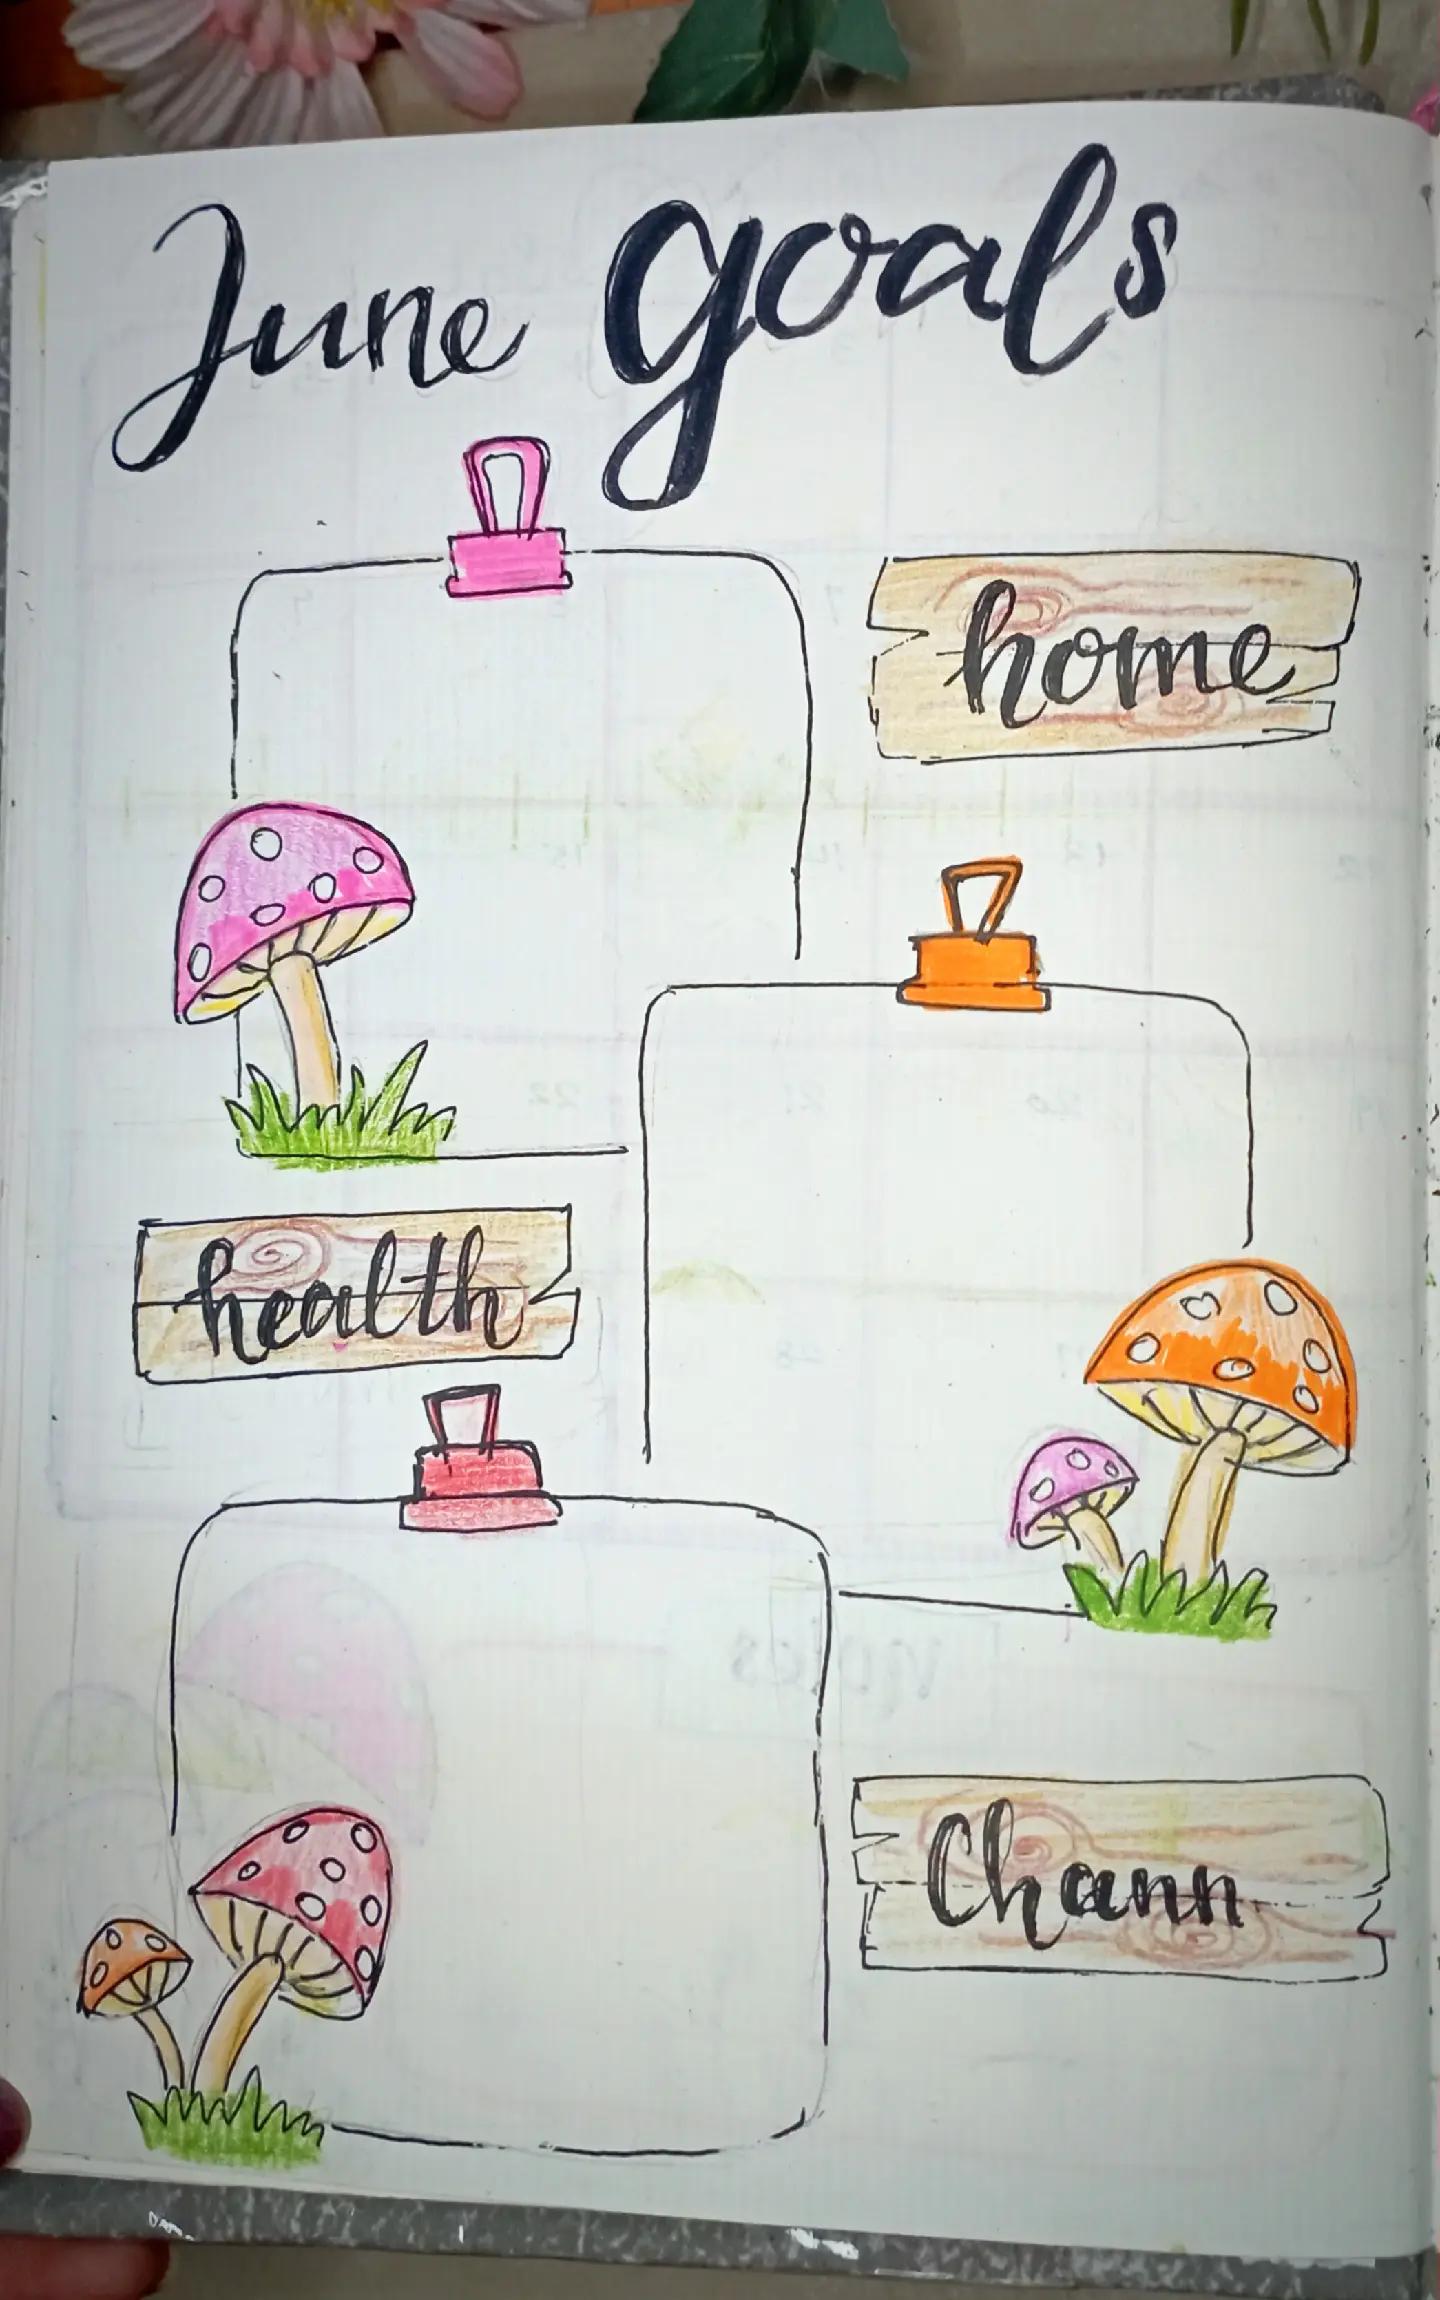 June goals
home
health
Chann